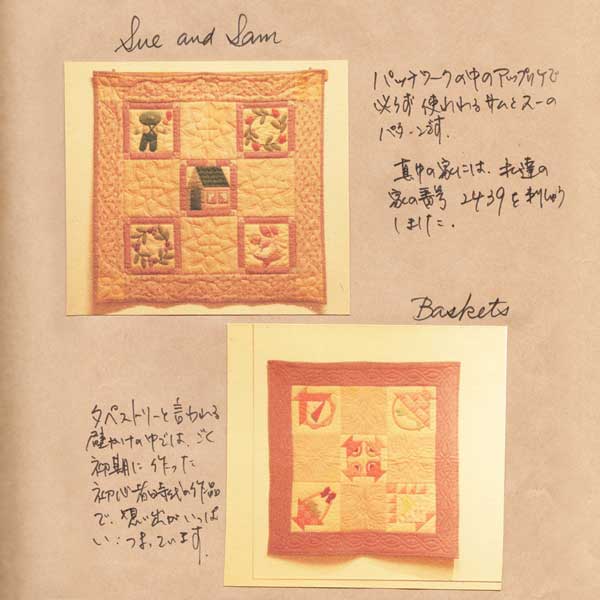 Sue and Sam
パッチワークの中のアップリケで
必らず使われるサムとスーの
パターンです.
真中の家には、私達の
家の番号 2439を刺しゅう
しました.
Baskets
タペストリーと言われる
壁かけの中では、ごく
初期に作った
初心者時代の作品
で、想い出がいっぱ
い:つまっています.